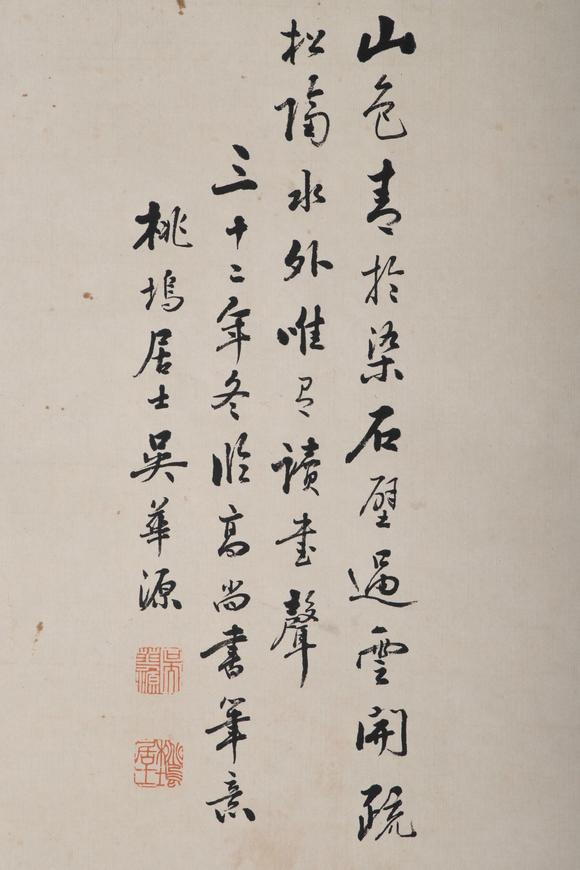 山色青於染石壁逼雲開疏
松隔水外唯有讀書聲
三十二年冬臨高尚書筆意
桃塢居士吳華源
桃塢居士